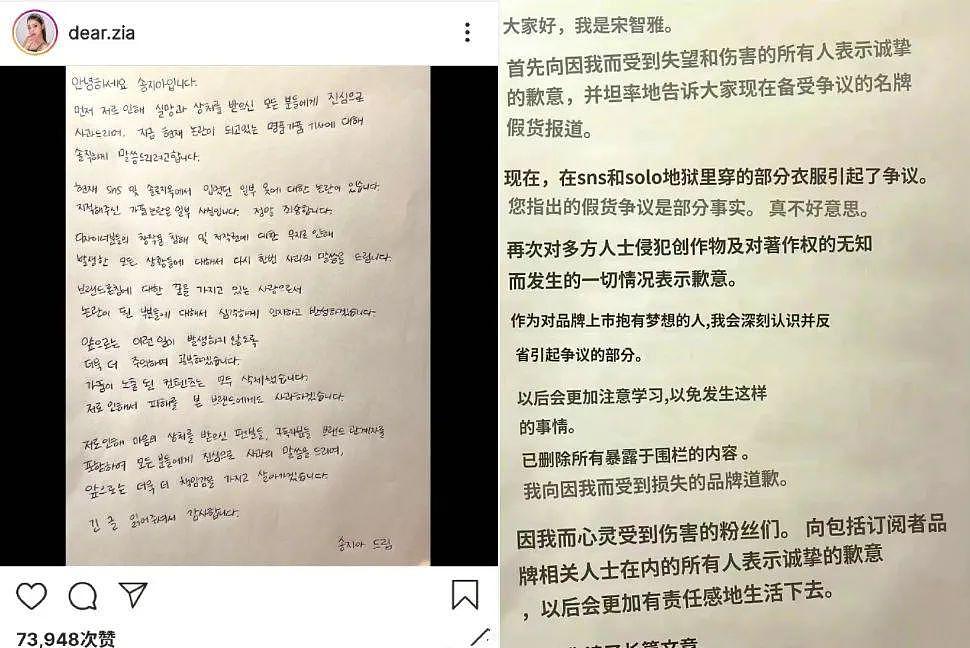 dear.zia
안녕하세요 송지아입니다.
먼저 저로 인해 실망과 상처를 받으신 모든 분들에게 진심으로
사과드리며, 지금 현재 논란이 되고있는 명품가품 기사에 대해
솔직하게 말씀드리려고합니다.
현재 SNS 및 솔로지옥에서 입었던 일부 옷에 대한 논란이 있습니다.
지적해주신 가품논란은 일부 사실입니다. 정말 죄송합니다.
디자이너분들의 창작물 침해 및 저작권에 대한 무지로 인해
발생한 모든 상황들에 대해서 다시 한번 사과의 말씀을 드립니다.
브랜드론칭에 대한 꿈을 가지고 있는 사람으로서
논란이 된 부분들에 대해서 심각하게 인지하고 반성하겠습니다.
앞으로는 이런 일이 발생하지 않도록
더욱 더 주의하며 공부하겠습니다.
가품이 노출 된 컨텐츠는 모두 삭제했습니다.
저로 인해서 피해를 본 브랜드에게도 사과하겠습니다.
저로인해 마음의 상처를 받으신 팬분들, 구독자분들 브랜드 관계자를
포함하여 모든 분들에게 진심으로 사과의 말씀을 드리며,
앞으로는 더욱 더 책임감을 가지고 살아가겠습니다.
긴 글 읽어주셔서 감사합니다.
송지아 드림
73,948次赞
大家好，我是宋智雅。
首先向因我而受到失望和伤害的所有人表示诚挚
的歉意，并坦率地告诉大家现在备受争议的名牌
假货报道。
现在，在sns和solo地狱里穿的部分衣服引起了争议。
您指出的假货争议是部分事实。 真不好意思。
再次对多方人士侵犯创作物及对著作权的无知
而发生的一切情况表示歉意。
作为对品牌上市抱有梦想的人,我会深刻认识并反
省引起争议的部分。
以后会更加注意学习,以免发生这样
的事情。
已删除所有暴露于围栏的内容 。
我向因我而受到损失的品牌道歉。
因我而心灵受到伤害的粉丝们。 向包括订阅者品
牌相关人士在内的所有人表示诚挚的歉意
，以后会更加有责任感地生活下去。